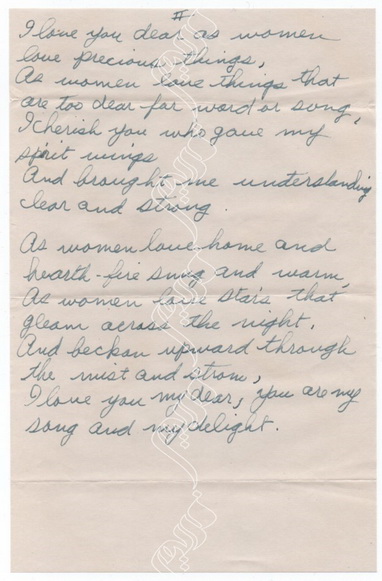 II
I love you dear as women
love precious things,
As women love things that
are too dear for word or song,
I cherish you who gave my
spirit wings
And brought me understanding
clear and strong.
As women love home and
hearth-fire snug and warm,
As women love stars that
gleam across the night,
And beckon upward through
the mist and strom,
I love you my dear, you are my
song and my delight.